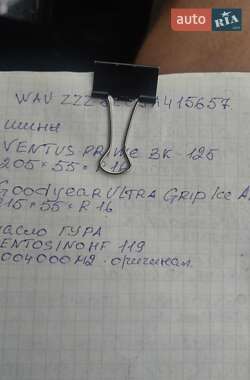 auto RIA.com
WAU ZZZ 415657
шини
VENTUS PRIME 3K-125
205-55- 16
Goodyear ULTRA Grip Ice A
215-55-R 16
масло ГУРА
ENTOSINOHF 119
004000M2 оригинал